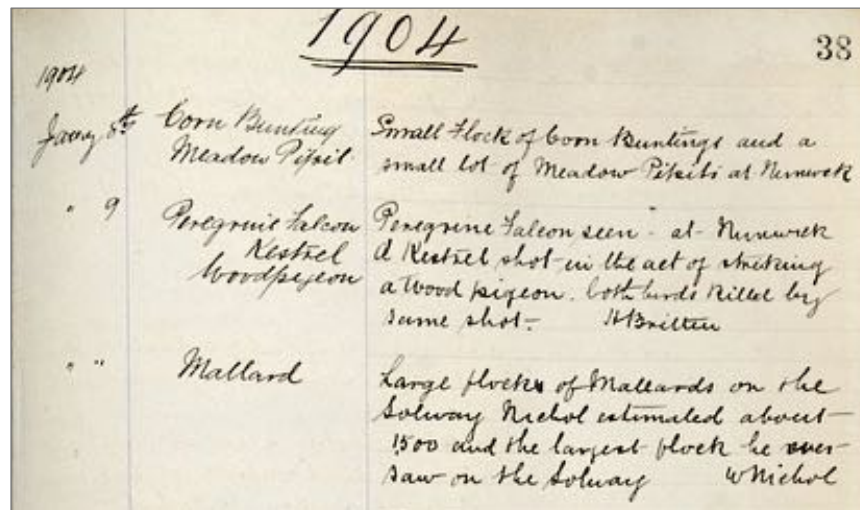 1904
38
1904
Jany 8th Corn Bunting Small Flock of Corn Buntings and a
Meadow Pipit. small lot of Meadow Pipits at Nunwick
" 9 Peregrine Falcon Peregrine Falcon seen - at Nunwick
Kestrel A Kestrel shot in the act of striking
Woodpigeon a Wood pigeon. both birds killed by
same shot. H Britten
" " Mallard Large flocks of Mallards on the
Solway Nichol estimated about
1500 and the largest flock he ever
saw on the Solway W Nichol